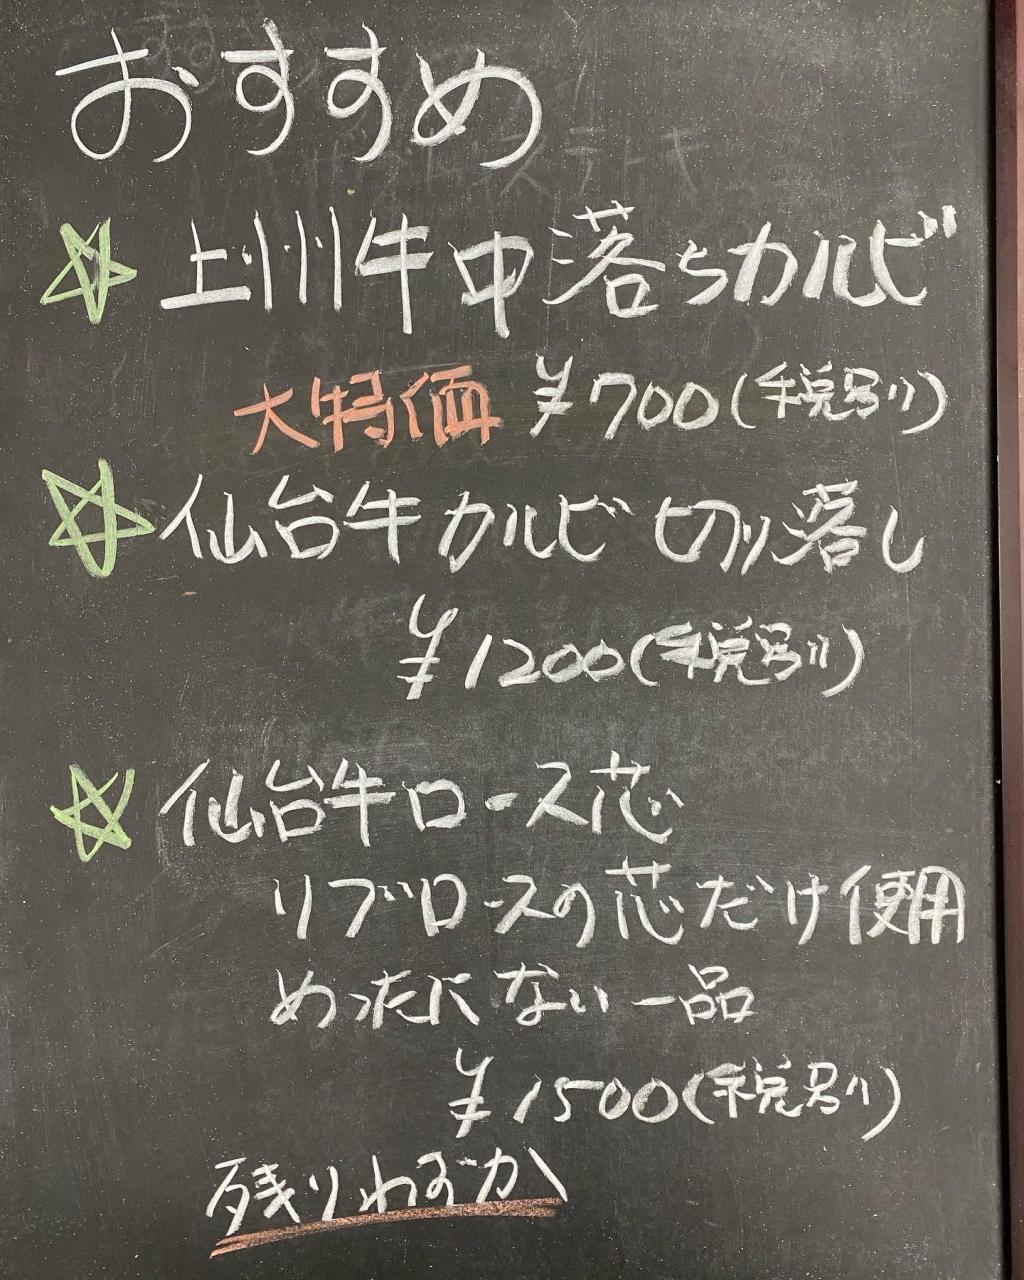 おすすめ
☆上州牛中落ちカルビ
大特価 ¥700(税別)
☆仙台牛カルビ切り落し
¥1200(税別)
☆仙台牛ロース芯
リブロースの芯だけ使用
めったにない一品
¥1500(税別)
残りわずか